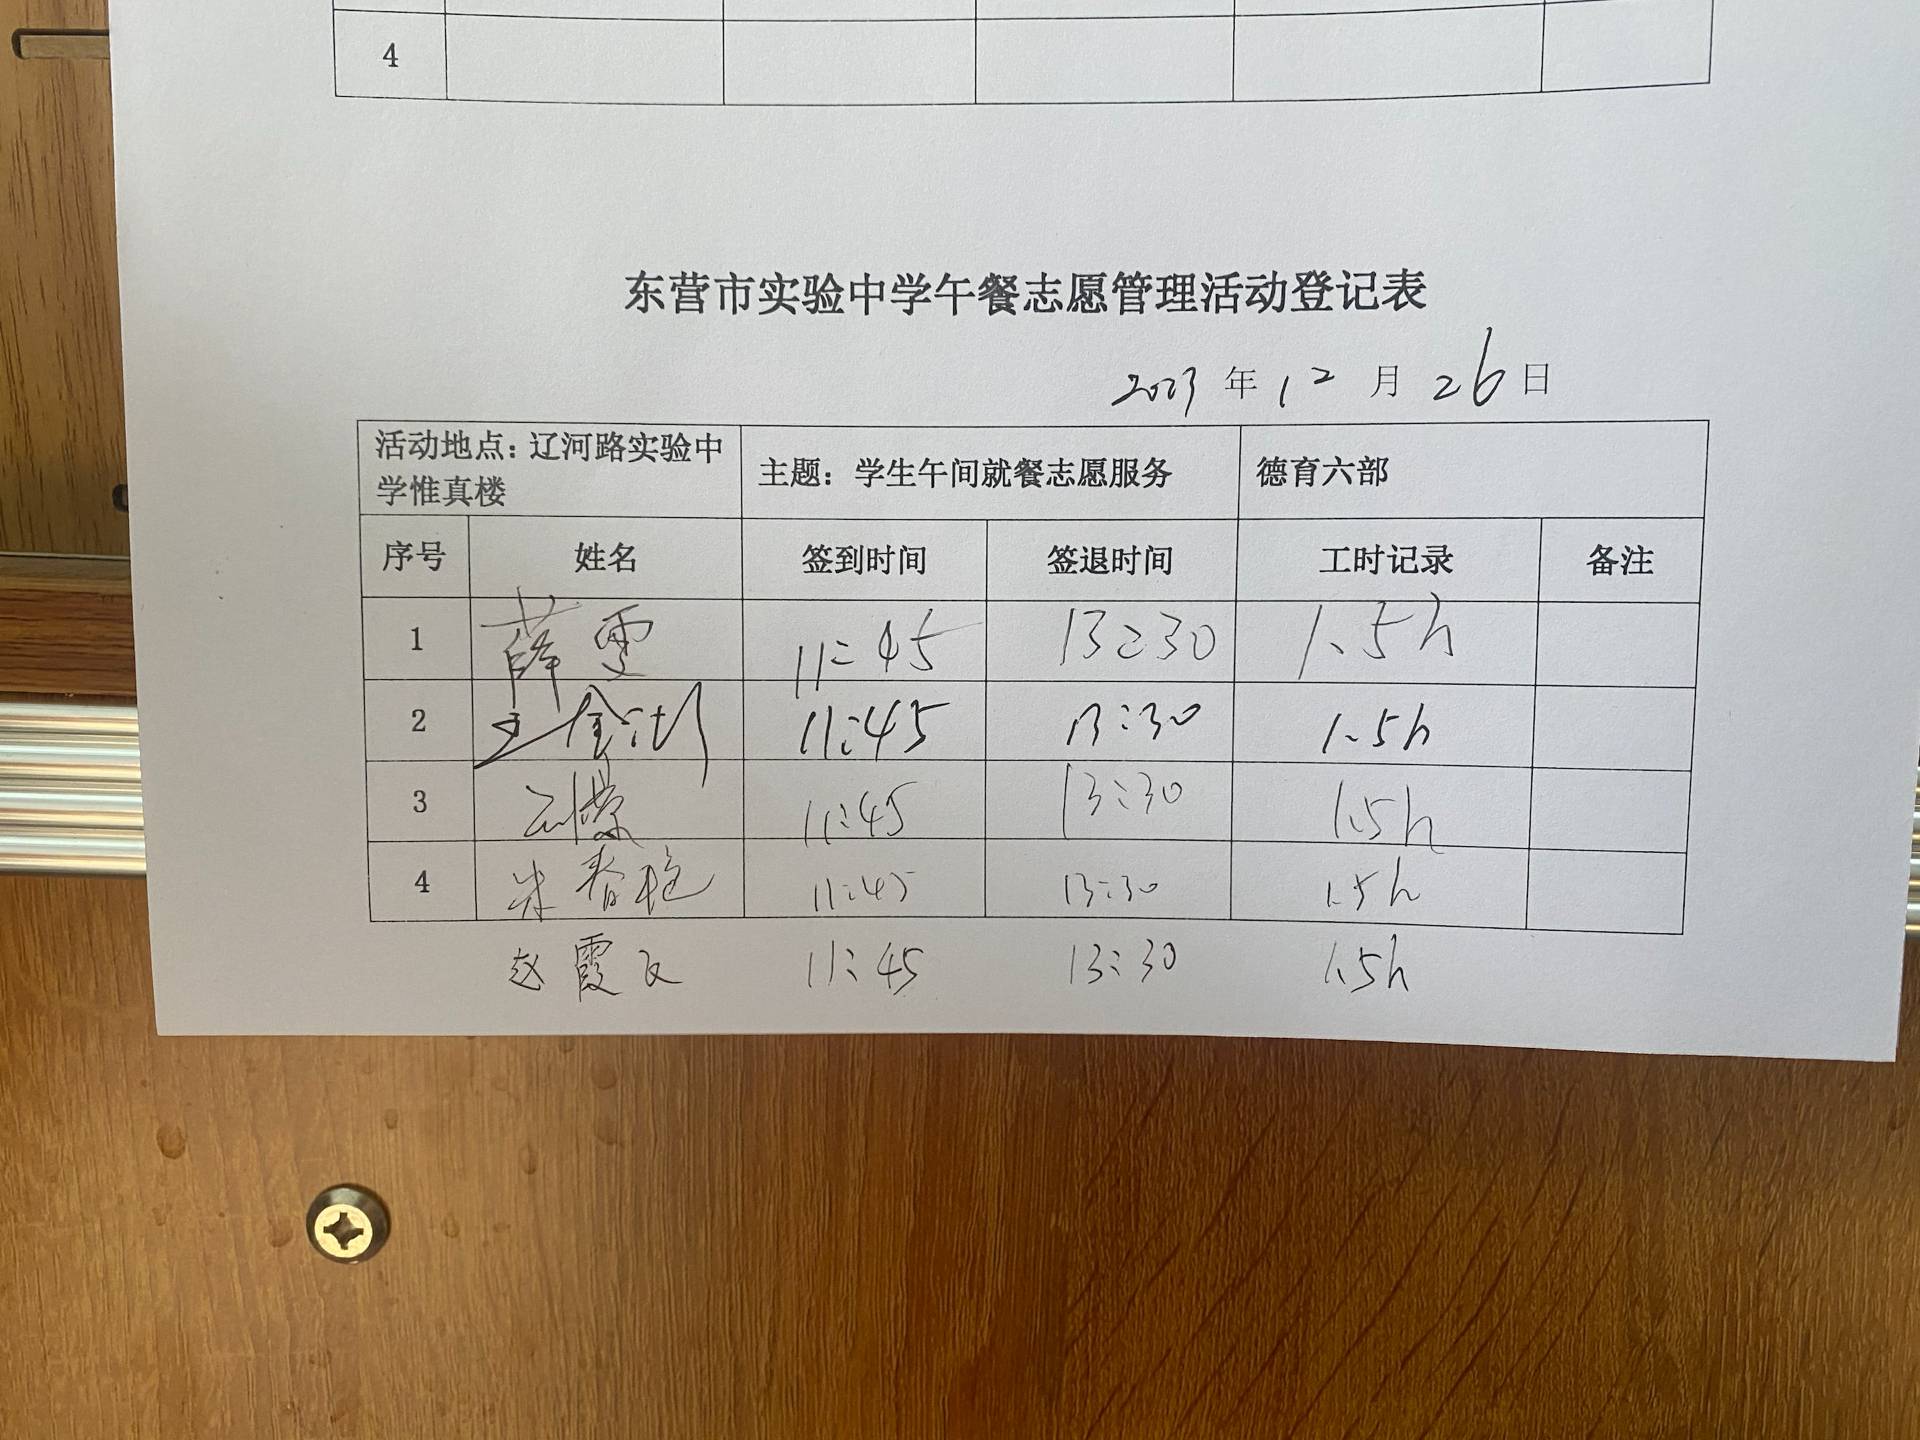 4
东营市实验中学午餐志愿管理活动登记表
2023 年 12 月 26 日
活动地点：辽河路实验中学惟真楼 主题：学生午间就餐志愿服务 德育六部
序号 姓名 签到时间 签退时间 工时记录 备注
1 薛雪 11:45 13:30 1.5h
2 王金 11:45 13:30 1.5h
3 11:45 13:30 1.5h
4 春艳 11:45 13:30 1.5h
赵霞 11:45 13:30 1.5h